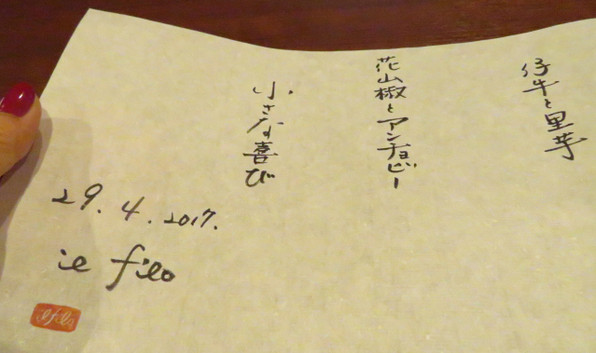 仔牛と里芋
花山椒とアンチョビー
小さな喜び
29.4.2017.
il filo
il filo